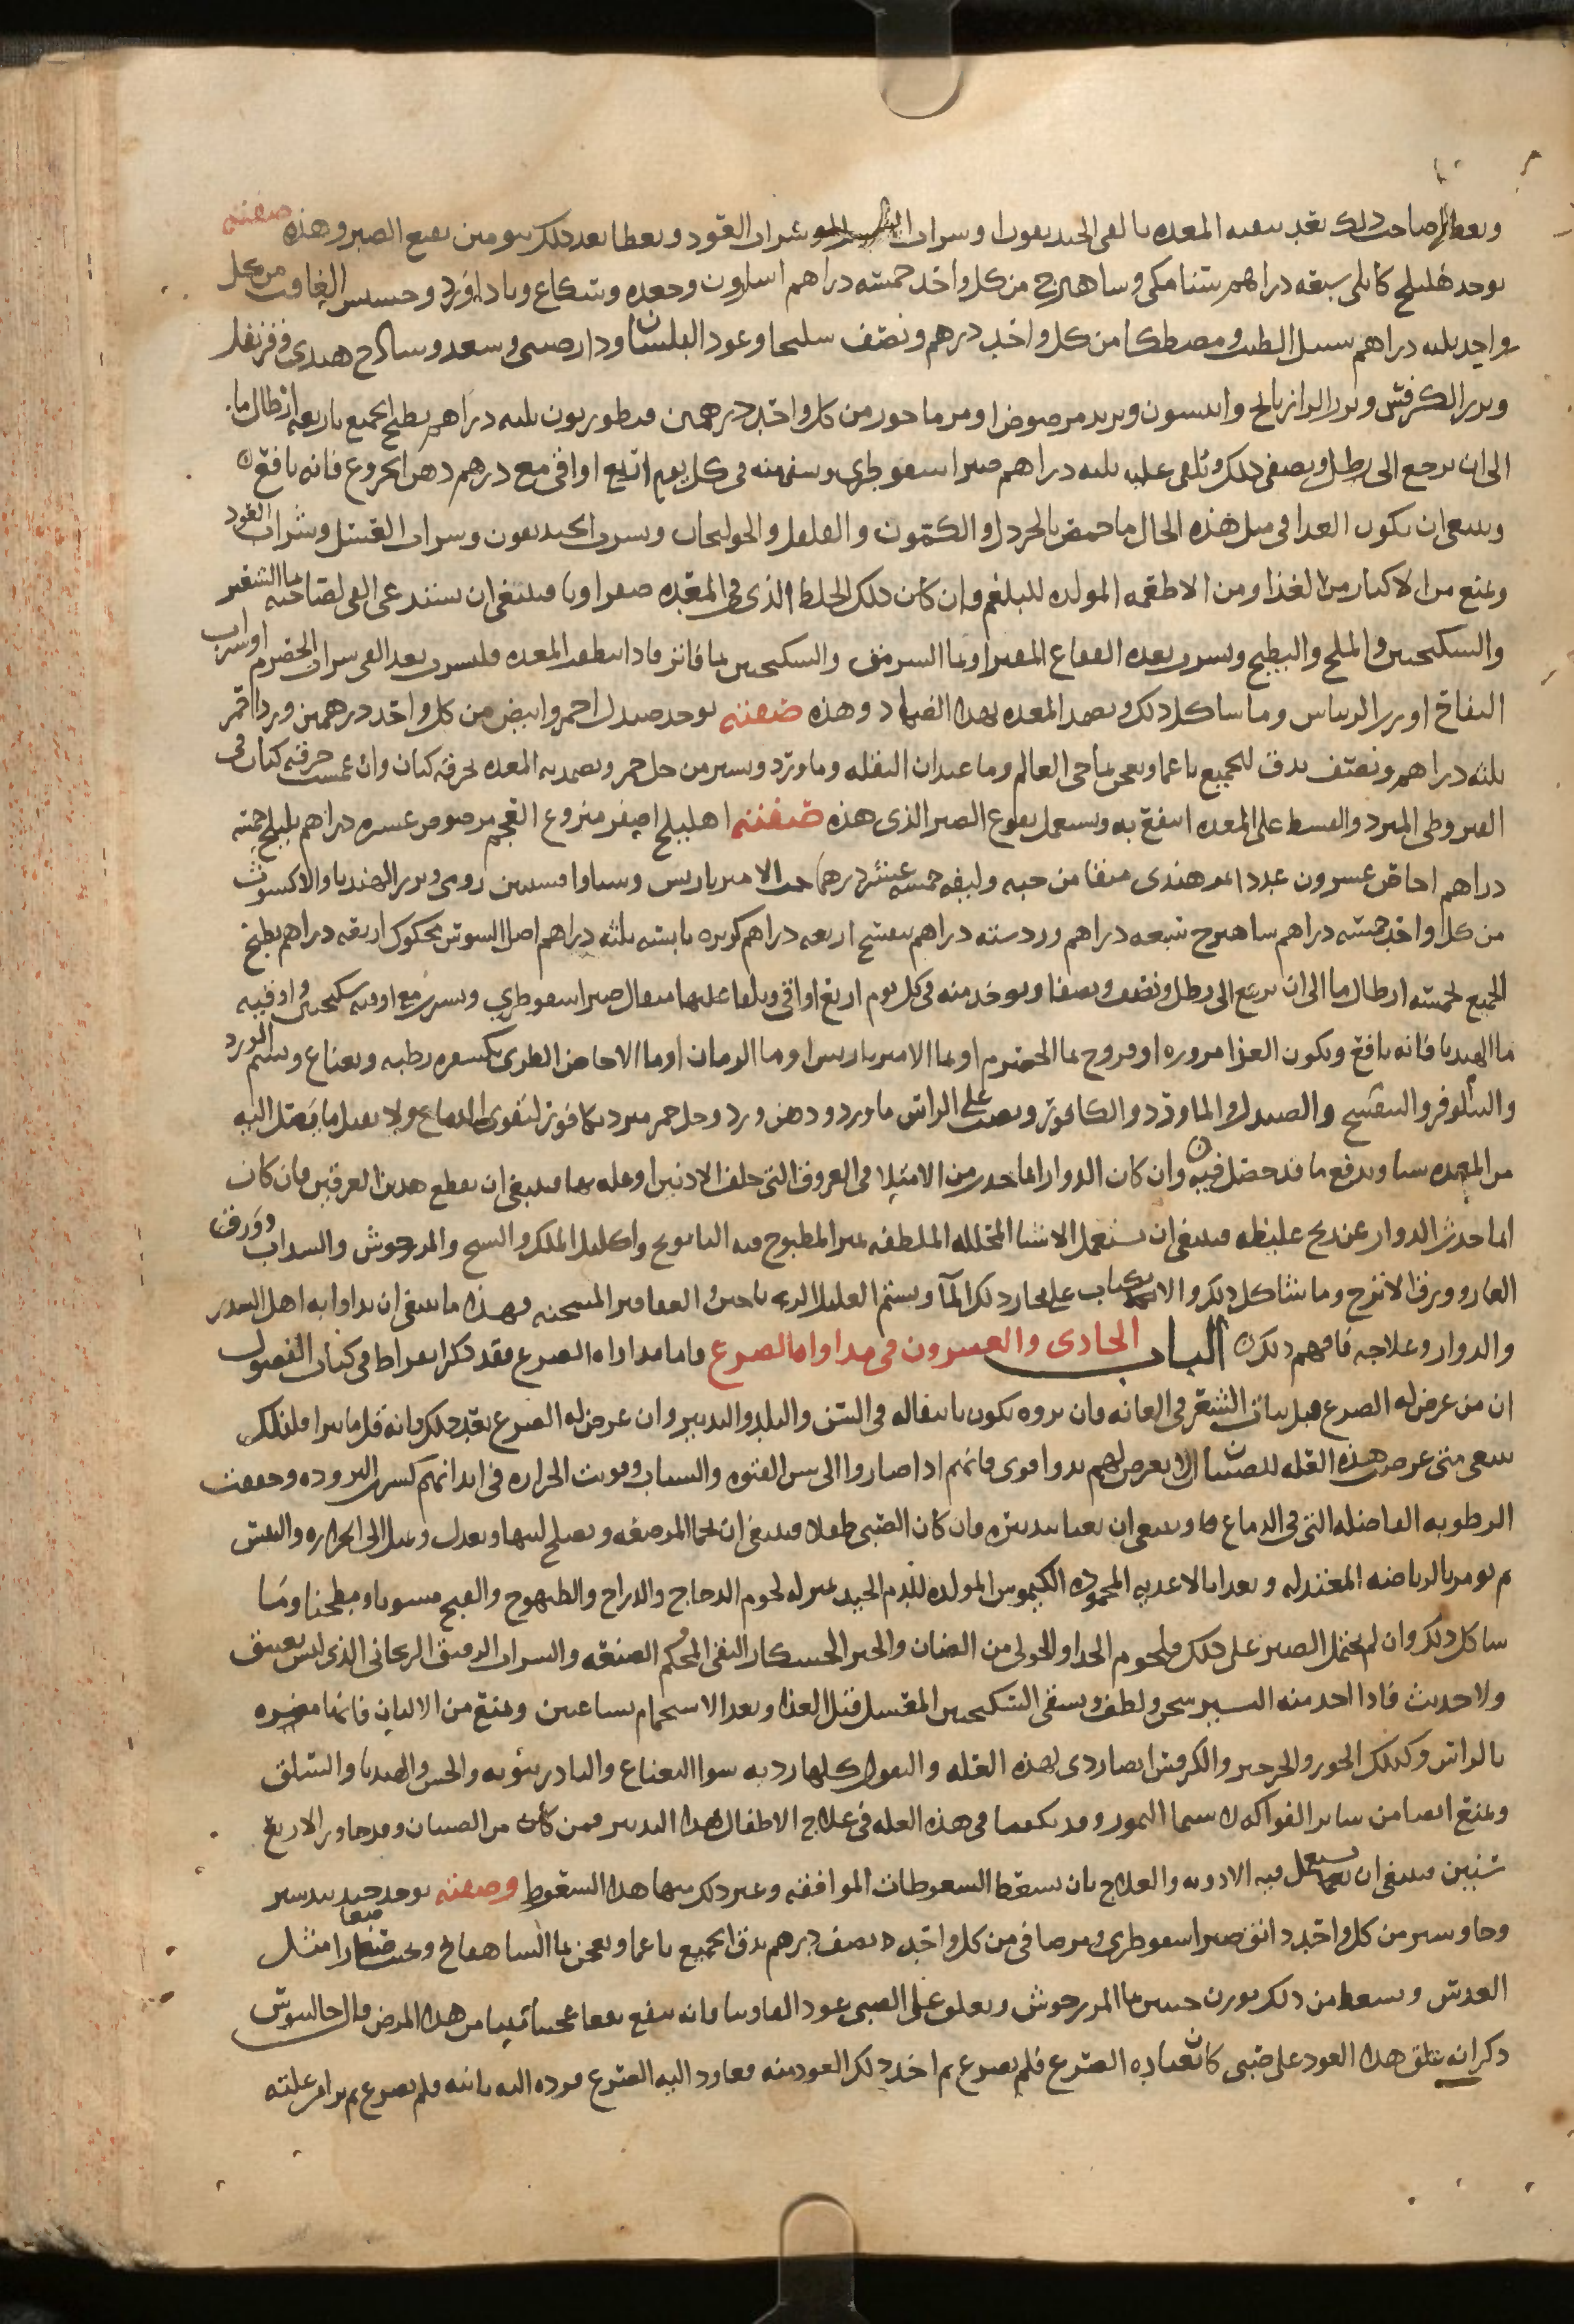 ويعطا صاحب ذلك بعد تنقيه المعده بالقى الحنديقون او شراب شراب العود ويعطا بعد ذلك يومين نقيع الصبر وهذه صفته
يوخذ هليلج كابلى سبعه دراهم سنامكى وشاهترج من كل واحد خمسه دراهم اسارون وجعده وشكاع وباداورد وحشيش الغافت من كل
واحد ثلثه دراهم سنبل الطيب ومصطكا من كل واحد درهم ونصف سليخا وعود البلسان ودارصينى وسعد وسادج هندى وقرنفل
وبزر الكرفس وبزر الرازيانج وانيسون وتربد مرضوض ومرماحور من كل واحد درهمين قنطوريون ثلثه دراهم يطبخ الجميع باربعه ارطال ما
الى ان يرجع الى رطل ويصفى ذلك ويلقى عليه ثلثه دراهم صبر اسقوطرى ويسقى منه فى كل يوم اربع اواقى مع درهم دهن الخروع فانه نافع
وينبغى ان يكون الغدا فى مثل هذه الحال ما حمص بالخردل والكمون والفلفل والخولنجان ويشرب الحنديقون وشراب العسل وشراب العود
ويمنع من الاكثار من الغذا ومن الاطعمه المولده للبلغم وان كان ذلك الخلط الذى فى المعده صفراويا فينبغى ان يستدعى القى لصاحبه بما الشعير
والسكنجبين والملح والبطيخ ويشرب بعده الفقاع المغير او بما السرمق والسكنجبين بما فاتر فاذا نظفت المعده فليشرب بعد القى شراب الحصرم او شراب
التفاح او رب الريباس وما شاكل ذلك وتضمد المعده بهذا الضماد وهذه صفته يوخذ صندل احمر وابيض من كل واحد درهمين ورد احمر
ثلثه دراهم ونصف يدق الجميع ناعما ويعجن بما حى العالم وما عيدان البقله وما ورد ويسير من خل خمر ويضمد به المعده بخرقه كتان وان غمست خرقه كتان فى
القيروطى المبرد وانبسط على المعده انتفع به ويستعمل نقوع الصبر الذى هذه صفته اهليلج اصفر منزوع العجم مرضوض عشره دراهم بليلج خمسه
دراهم اجاص عشرون عددا تمر هندى منقا من حبه وليفه خمسه عشر درهما حب الاميرباريس وسنا وافسنتين رومى وبزر الهندبا والاكشوث
من كل واحد خمسه دراهم شاهترج سبعه دراهم ورد سته دراهم بنفسج اربعه دراهم كزبره يابسه ثلثه دراهم اصل السوس محكوك اربعه دراهم يطبخ
الجميع بخمسه ارطال ما الى ان يرجع الى رطل ونصف ويصفا ويوخذ منه فى كل يوم اربع اواقى ويلقا عليها مثقال صبر اسقوطرى ويشرب مع اوقيه سكنجبين واوقيه
ما الهندبا فانه نافع ويكون الغذا مزوره او فروج بما الحصرم او بما الاميرباريس او ما الرمان او ما الاجاص الطرى بكسفره رطبه ونعناع ويشم الورد
والنيلوفر والبنفسج والصندل والماورد والكافور ويصب على الراس ماورد ودهن ورد وخل خمر مبرد بكافور لتقوى الدماغ ولا يقبل ما يتصل اليه
من المعده شيا ويدفع ما قد حصل فيه وان كان الدوار انما حدث من الامتلا فى العروق التى خلف الاذنين او عله بها فينبغى ان يقطع هدين العرقين فان كان
انما حدث الدوار عن ريح غليظه فينبغى ان يستعمل الاشيا المحلله الملطفه بمنزلة المطبوخ فيه البابونج واكليل الملك والشيح والمرزجوش والسداب وورق
الغار وورق الاترج وما شاكل ذلك والانكباب على بخار ذلك الما ويشم العليل العقاقير المسخنه فهذا ما ينبغى ان يداوا به اهل السدر
والدوار وعلاجه فافهم ذلك الباب الحادى والعشرون فى مداواه الصرع واما مداواه الصرع فقد ذكر ابقراط فى كتاب الفصول
ان من عرض له الصرع قبل نبات الشعر فى العانه فان بروه يكون بانتقاله فى السن والبلد والتدبير وان عرض له الصرع بعد ذلك فانه قل ما يبرا فلذلك
ينبغى متى عرض هذه العله للصبيان الا يعرض لهم بدوا قوى فانهم اذا صاروا الى سن الفتوه والشباب وقويت الحراره فى ابدانهم كسرت البروده وجففت
الرطوبه الفاضله التى فى الدماغ وينبغى ان يعنا بتدبيره فان كان الصبى طفلا فينبغى ان تحما المرضعه ويصلح لبنها ويعدل ويميل الى الحراره واليبس
ثم تومر بالرياضه المعتدله وتغدا بالاغديه المحموده الكيموس المولده للدم الجيد بمنزله لحوم الدجاج والدراج والطيهوج والقبج مشويا ومطجنا وما
شاكل ذلك وان لم يحتمل الصبر على ذلك فلحوم الجدا والحولى من الضان والخبز الخشكار النقى المحكم الصنعه والشراب الرقيق الريحانى الذى ليس بعتيق
ولا حديث فاذا اخذ منه اليسير سخن ولطف ويسقى السكنجبين المعسل قبل الغذا وبعد الاستحمام بساعتين ويمنع من الالبان فانها مضره
بالراس وكذلك الجوز والجرجير والكرفس ايضا ردى لهذه العله والبقول كلها رديه سوا النعناع والبادرنبويه والخس والهندبا والسلق
ويمنع ايضا من ساير الفواكه لا سيما التمور وقد يكتفى فى هذه العله فى علاج الاطفال بهذا التدبير فمن كان من الصبيان قد جاوز الاربع
سنين فينبغى ان يستعمل فيه الادويه والعلاج بان يسعط السعوطات الموافقه وغير ذلك منها هذا السعوط وصفته يوخذ جندبيدستر
وجاوشير من كل واحد دانق صبر اسقوطرى ومر صافى من كل واحد نصف درهم يدق الجميع ناعما ويعجن بما الشاهسفرم ويحبب صغارا مثل
العدس ويسعط من ذلك بوزن حبتين بما المرزجوش ويعلق على الصبى عود الفاوينا فانه ينفع نفعا عجيبا من هذا المرض قال جالينوس
ذكر انه علق هذا العود على صبى كان يعتاده الصرع فلم يصرع ثم اخذ ذلك العود منه فعاود اليه الصرع فرده اليه ثانيه فلم يصرع ثم برا من علته